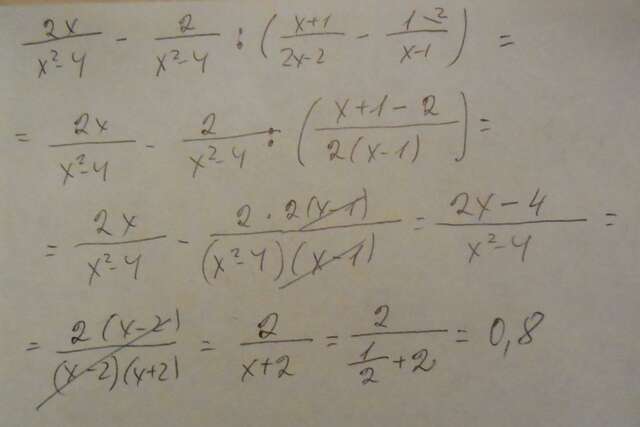 2x/(x²-4) - 2/(x²-4) : ((x+1)/(2x-2) - 1\²/(x-1)) =
= 2x/(x²-4) - 2/(x²-4) : ((x+1-2)/(2(x-1))) =
= 2x/(x²-4) - (2·2(x-1))/((x²-4)(x-1)) = (2x-4)/(x²-4) =
= (2(x-2))/((x-2)(x+2)) = 2/(x+2) = 2/(1/2+2) = 0,8